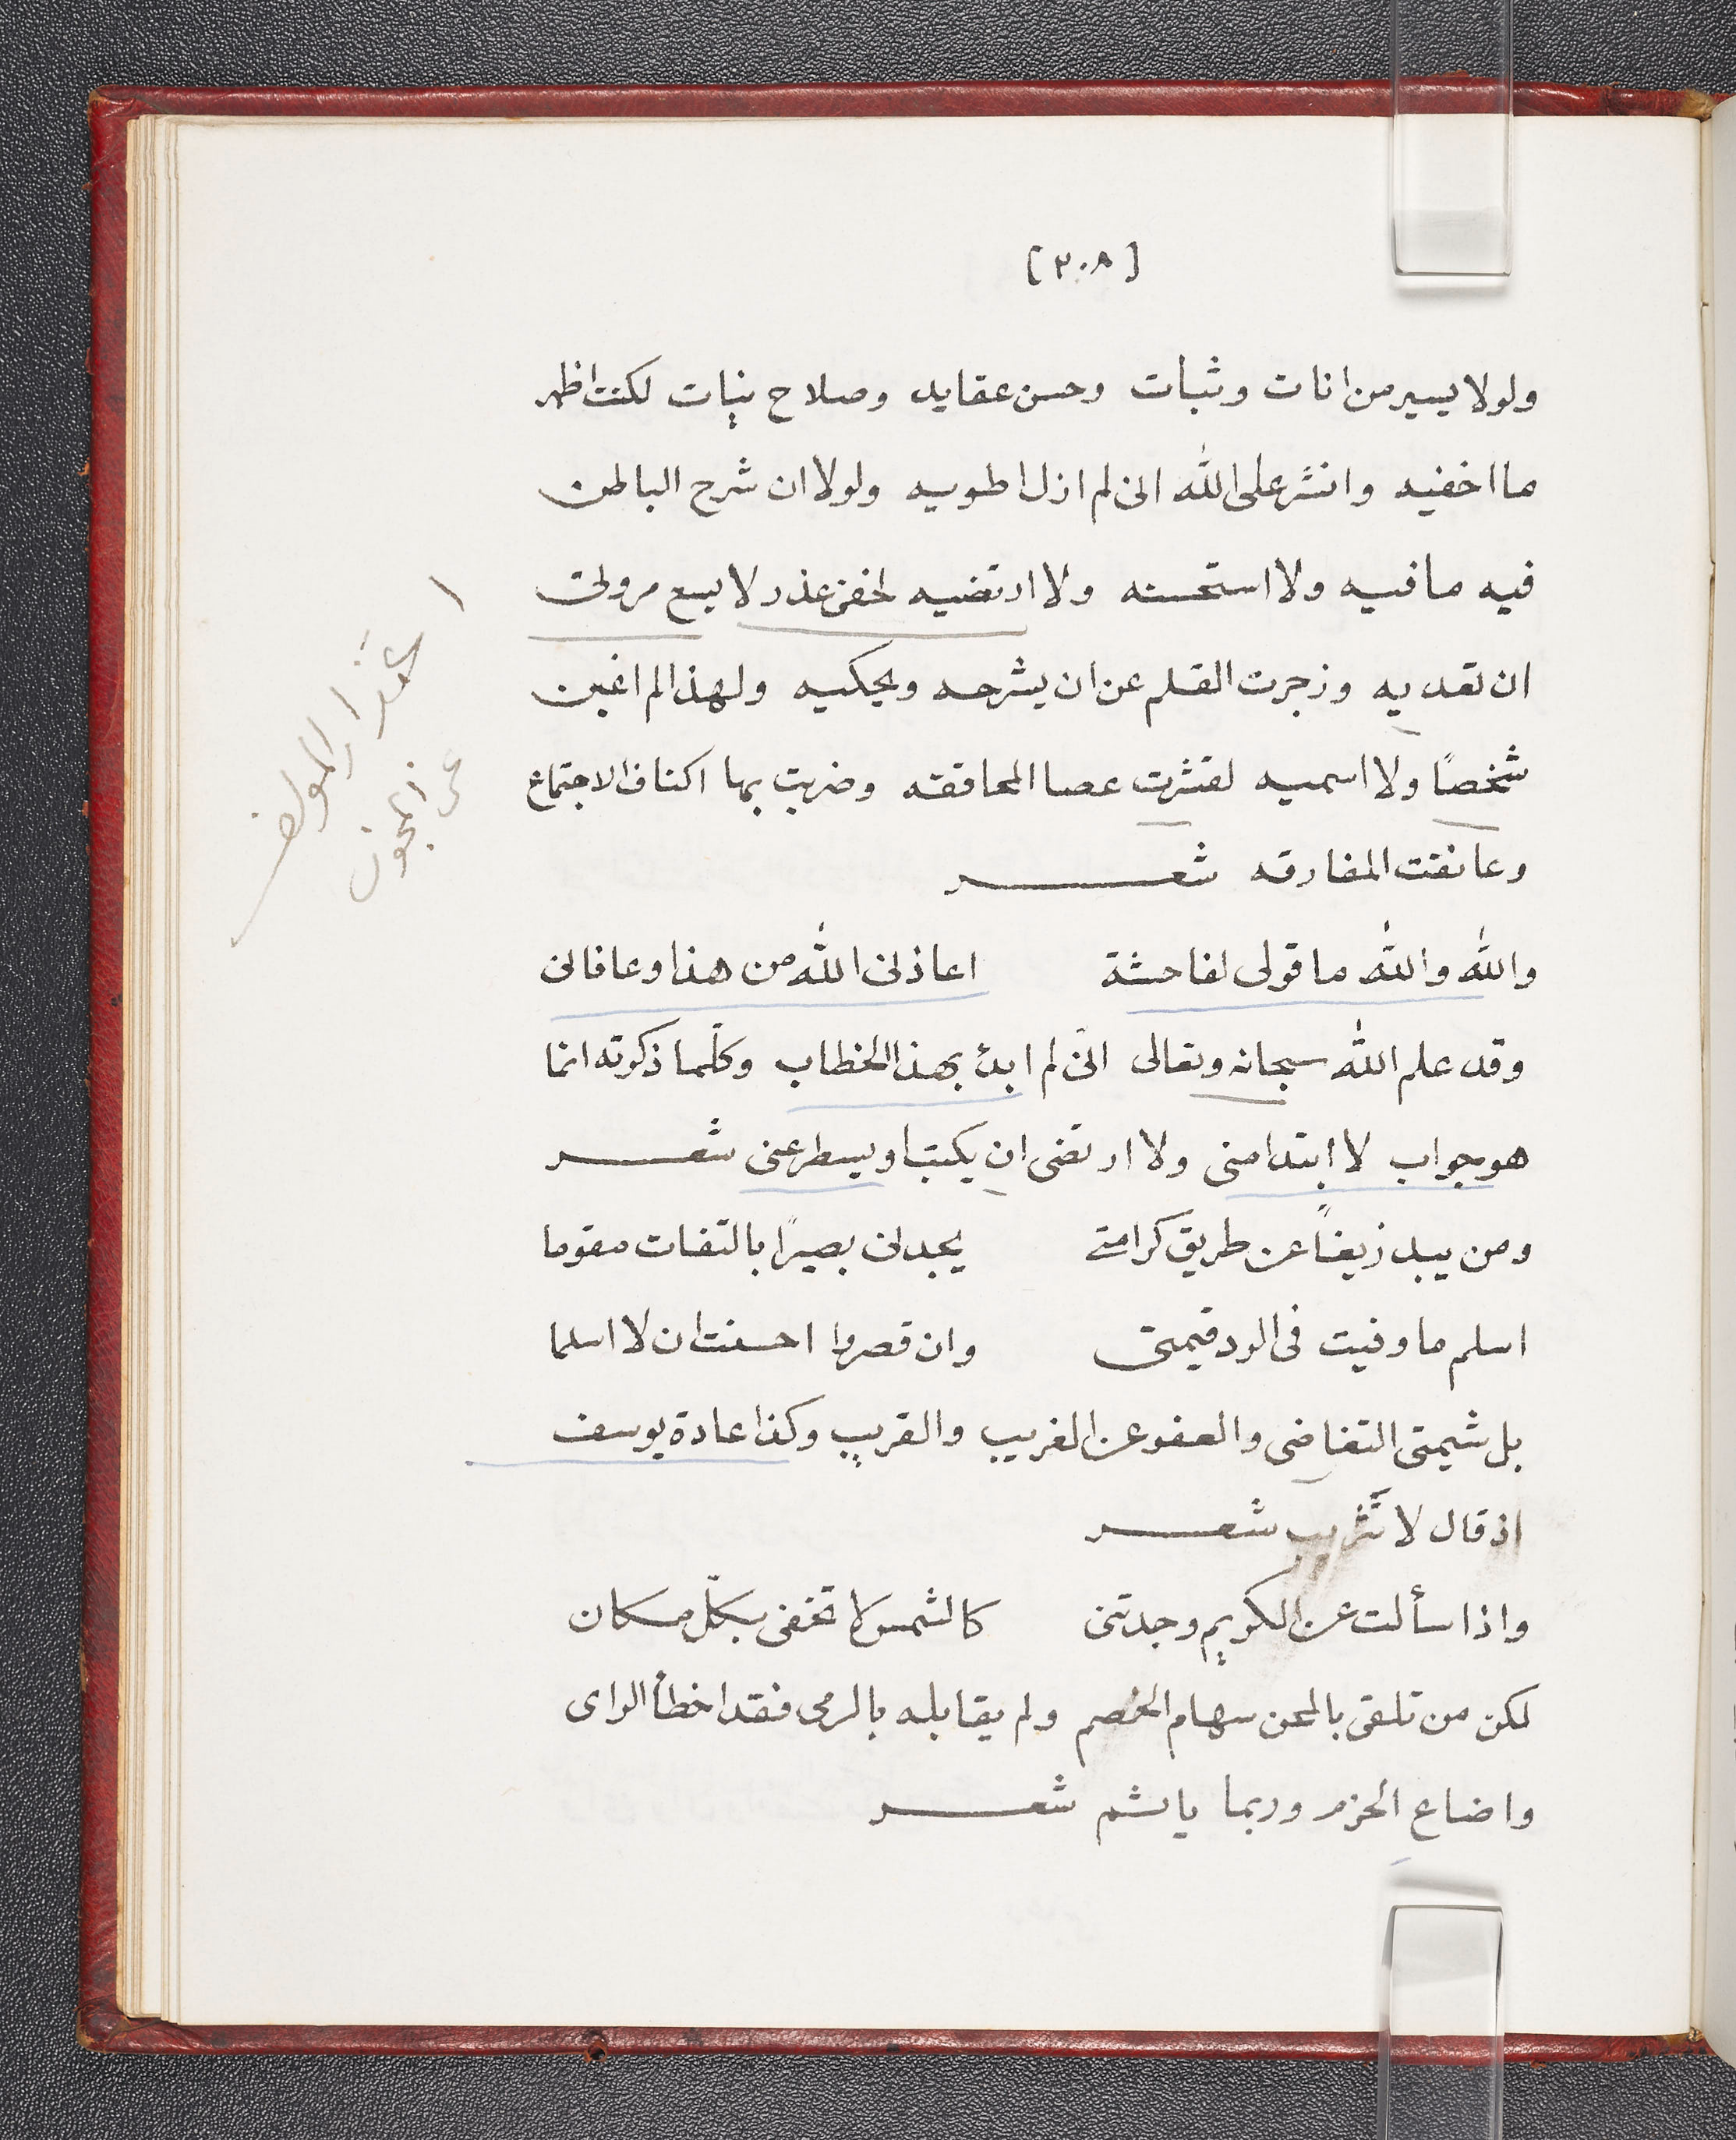 [٢٠٨]
ولولا يسير من انات وثبات وحسن عقايد وصلاح نيات لكنت اظهر
ما اخفيه وانشر على الله انى لم ازل اطويه ولولا ان شرح الباطن
فيه ما فيه ولا استحسنه ولا ارتضيه لخفى عذر لا يسع مروتى
ان تقديه وزجرت القلم عن ان يشرحه ويحكيه ولهذا لم اعين
شخصًا ولا اسميه لقشرت عصا المحاققه وضربت بها اكتاف الاجتماع
وعانقت المفارقه شعر
والله والله ما قولى لفاحشة اعاذنى الله من هذا وعافانى
وقد علم الله سبحانه وتعالى انى لم ابدئ بهذا الخطاب وكلّما ذكرته انما
هو جواب لا ابتدا منى ولا ارتضى ان يكتب او يسطر عنى شعر
ومن يبد زيغاً عن طريق كرامتى يجدنى بصيرًا بالتفات مقوما
اسلم ما وفيت فى الود قيمتى وان قصروا احسنت ان لا اسلما
بل شيمتى التغاضى والعفو عن الغريب والقريب وكذا عادة يوسف
اذ قال لا تثريب شعر
واذا سألت عن الكريم وجدتنى كالشمس لا تخفى بكلّ مكان
لكن من تلقى بالمحن سهام الخصم ولم يقابله بالرمى فقد اخطأ الراى
واضاع الحزم وربما يا بشم شعر
اعتذار المولف
عن المجون